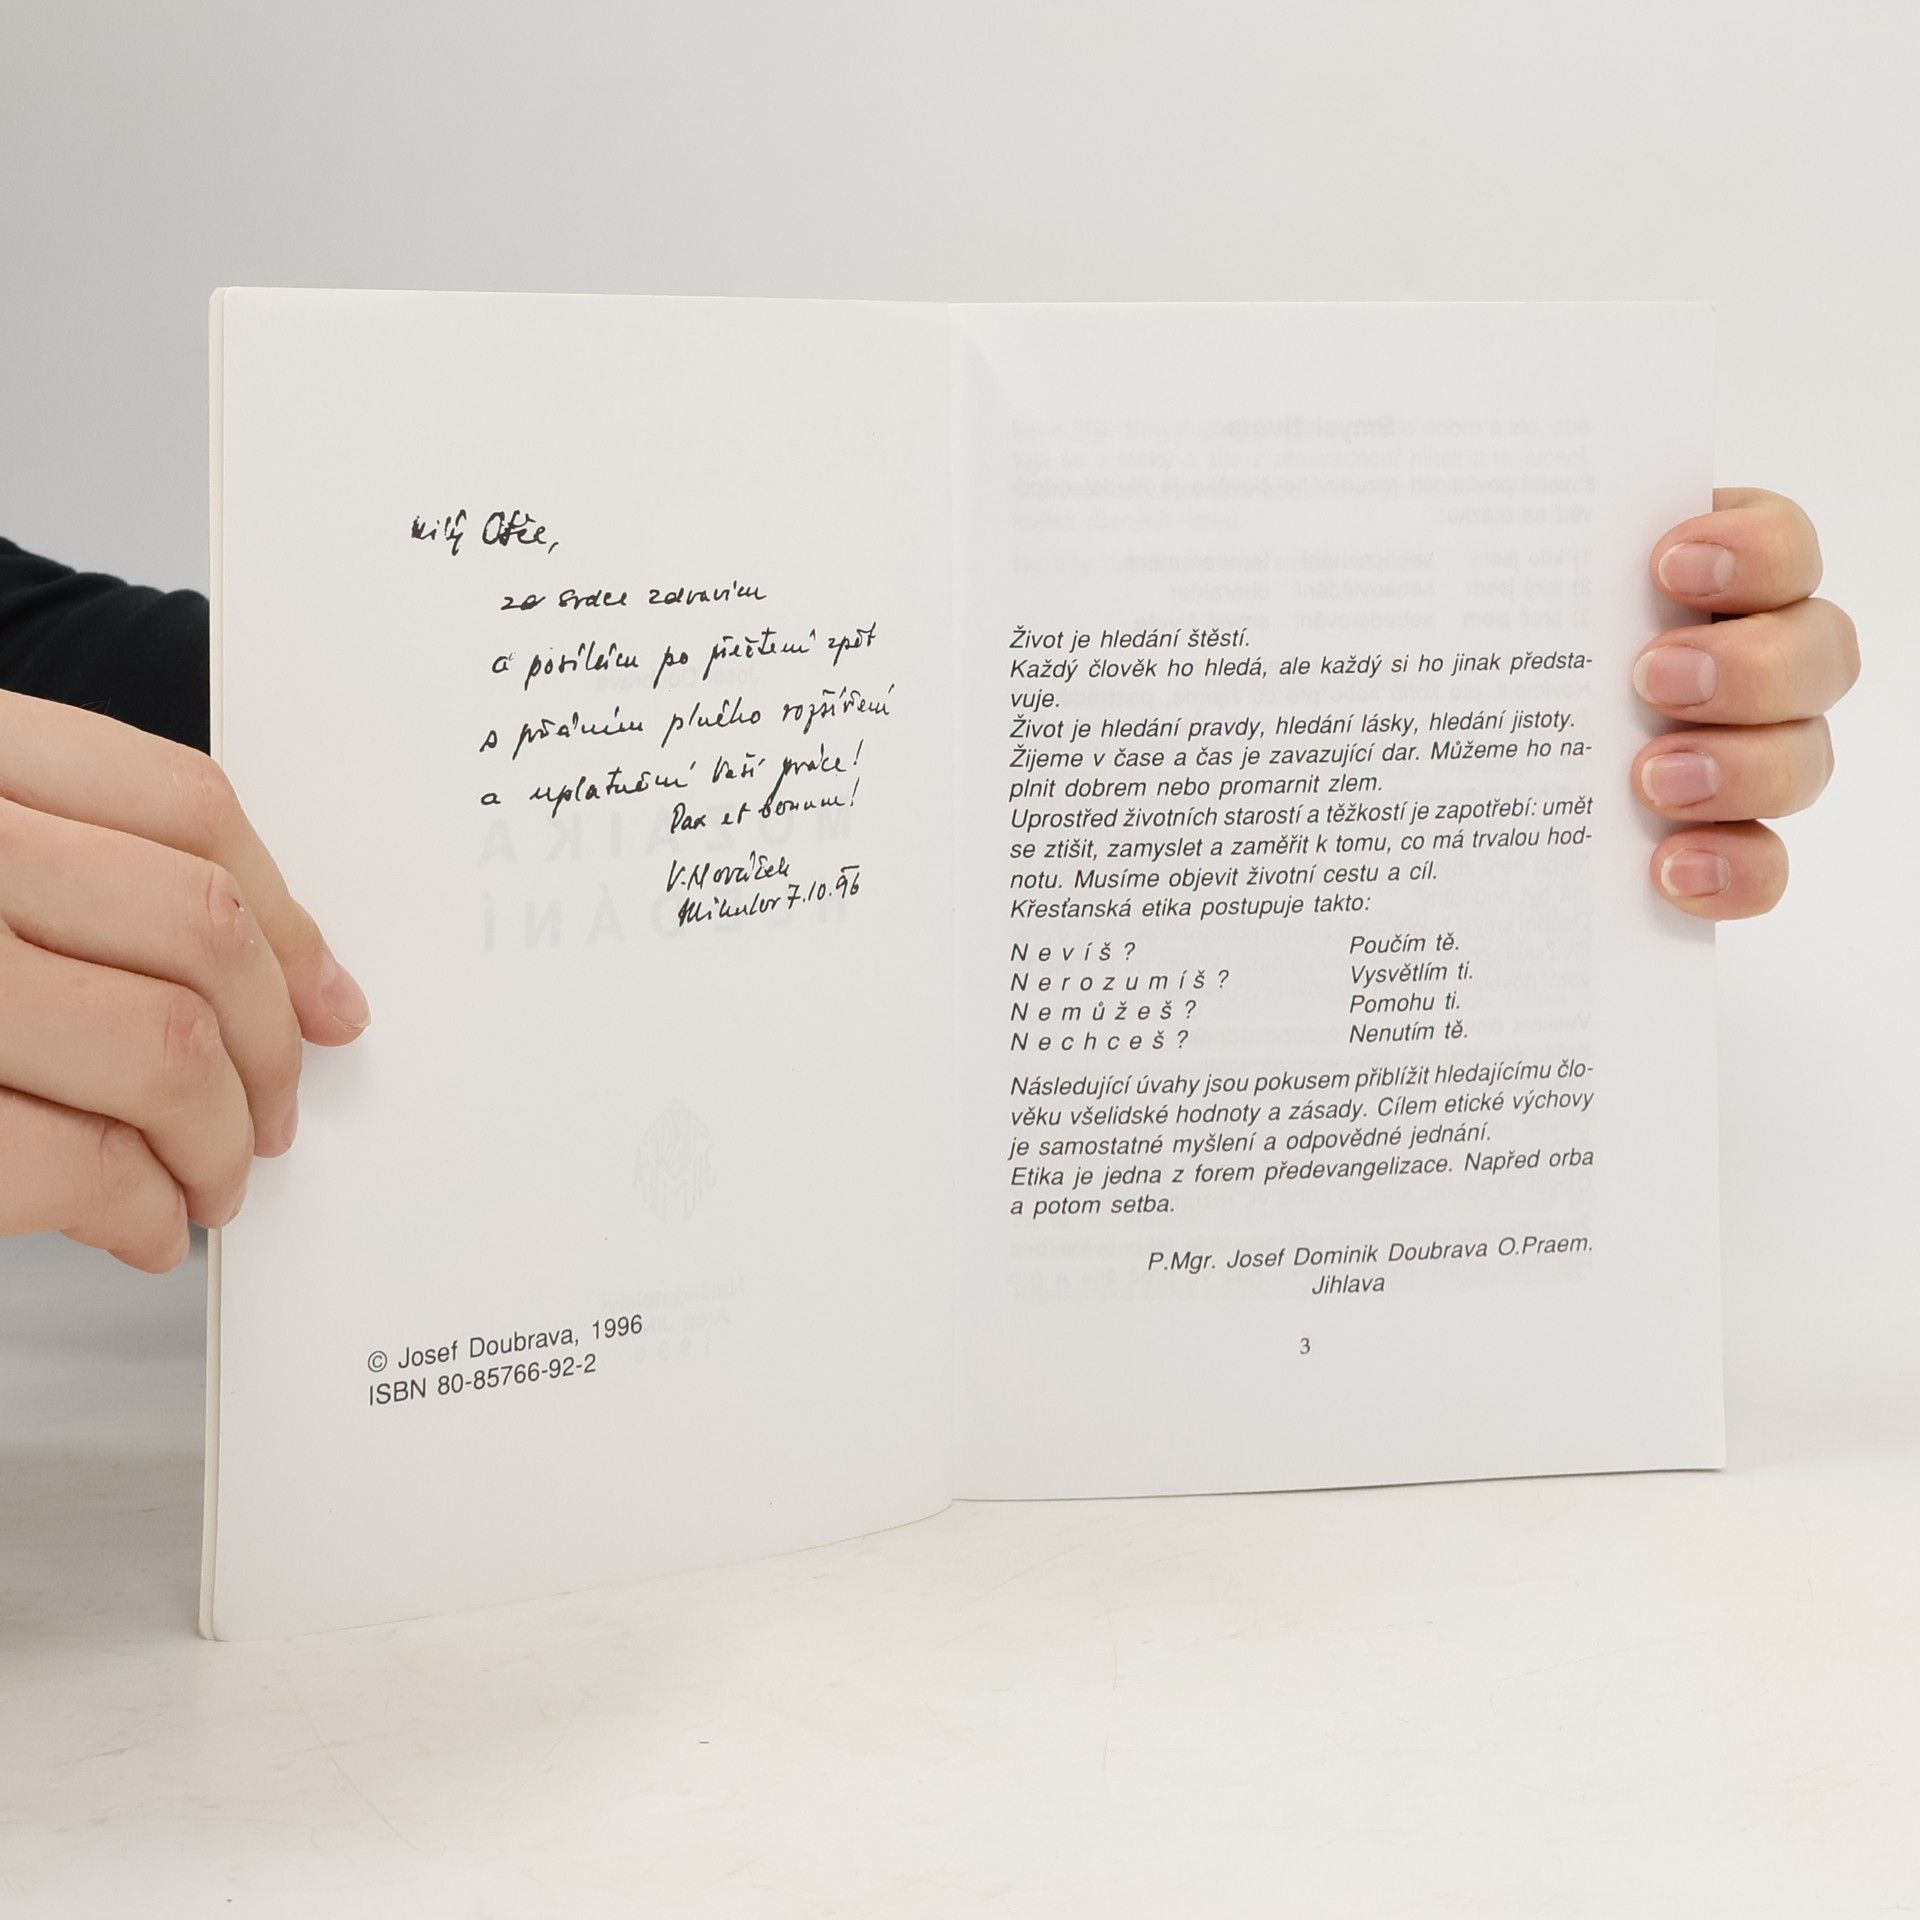 milý Otče,
ze srdce zdravím
a posílám po přečtení zpět
s přáním plného rozšíření
a uplatnění Vaší práce!
Pax et bonum!
V. Nováček
Mikulov 7.10.96
© Josef Doubrava, 1996
ISBN 80-85766-92-2
Život je hledání štěstí.
Každý člověk ho hledá, ale každý si ho jinak předsta-
vuje.
Život je hledání pravdy, hledání lásky, hledání jistoty.
Žijeme v čase a čas je zavazující dar. Můžeme ho na-
plnit dobrem nebo promarnit zlem.
Uprostřed životních starostí a těžkostí je zapotřebí: umět
se ztišit, zamyslet a zaměřit k tomu, co má trvalou hod-
notu. Musíme objevit životní cestu a cíl.
Křesťanská etika postupuje takto:
Nevíš? Poučím tě.
Nerozumíš? Vysvětlím ti.
Nemůžeš? Pomohu ti.
Nechceš? Nenutím tě.
Následující úvahy jsou pokusem přiblížit hledajícímu člo-
věku všelidské hodnoty a zásady. Cílem etické výchovy
je samostatné myšlení a odpovědné jednání.
Etika je jedna z forem předevangelizace. Napřed orba
a potom setba.
P.Mgr. Josef Dominik Doubrava O.Praem.
Jihlava
3